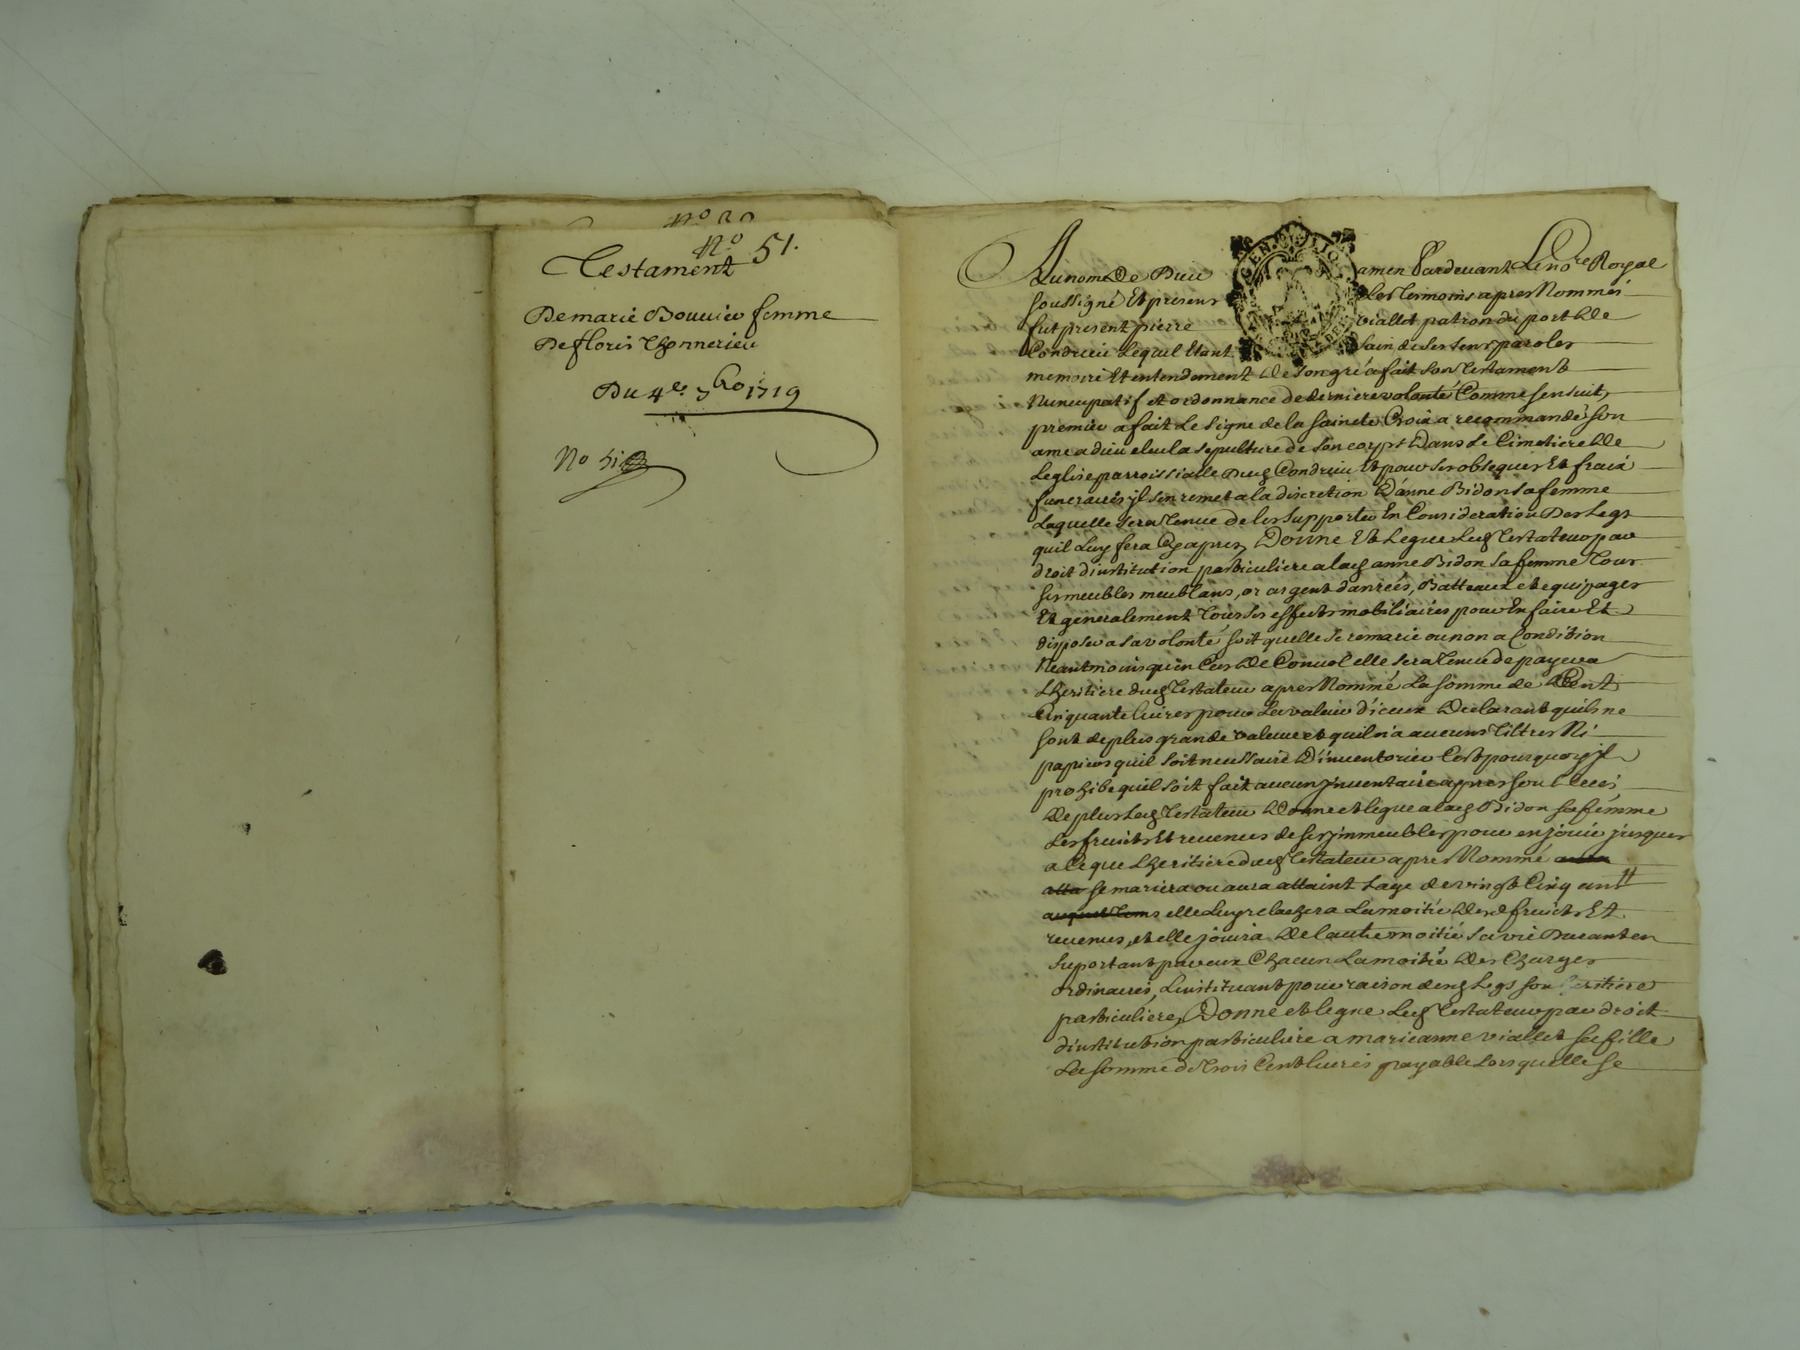 No 51.
Testament
De marie Bouuier femme
De floris Thonnerieu
Du 4e 7bre 1719
No 51
Au nom De Dieu amen Pardeuant Le nore Royal
soussigné Et presens Les tesmoins apres Nommés
fut present pierre viallet patron du port De
Condrieu Lequel Etant sain de ses sens paroles
memoire Et entendement De son gré a fait son testament
Nuncupatif et ordonnance de derniere volonté Comme sensuit,
premier a fait Le signe de la sainete Croix a recommandé son
ame a dieu eleu la sepulture de son corps Dans Le Cimetiere De
Leglise parroissialle Dud Condrieu Et pour ses obseques Et fraix
funeraires jl sen remet a la discretion D'anne Bidon sa femme
Laquelle sera tenue de les supporter En Consideration Des Legs
quil Luy fera Cy apres, Donne Et Legue Led Testateur par
droit dinstitution particuliere a lad anne Bidon sa femme Tous
ses meubles meublans, or argent danreés, Batteaux et equipages
Et generalement Tous ses effects mobiliaires pour En faire Et
disposer a sa volonté soit quelle se remarie ou non a Condition
Neantmoins quen Cas De Conuol elle sera tenue de payer a
Lheritiere dud Testateur apres Nommé La somme de Cent
Cinquante liures pour La valeur d'iceux Declarant quils ne
sont de plus grande valeur et quil n'a aucuns tiltres Ni
papiers quil soit necessaire D'inuentorier C'est pourquoy jl
prohibe quil soit fait aucun jnuentaire apres son deces
De plus Led Testateur Donne et legue a lad Bidon sa femme
Les fruits Et reuenus de ses jmmeubles pour en jouir jusques
a Ce que Lheritiere dud Testateur apres Nommé
se mariera ou aura attaint Lage de vingt Cinq ans
elle Luy relachera La moitié Desd fruicts Et
reuenus, et elle jouira De lautre moitié sa vie Durant en
suportant par eux Chacun La moitié Des Charges
ordinaires, Linstituant pour raison desd Legs son heritiere
particuliere, Donne et legue Led Testateur par droit
dinstitution particuliere a marieanne viallet sa fille
La somme de Trois Cent liures payable Lors quelle se